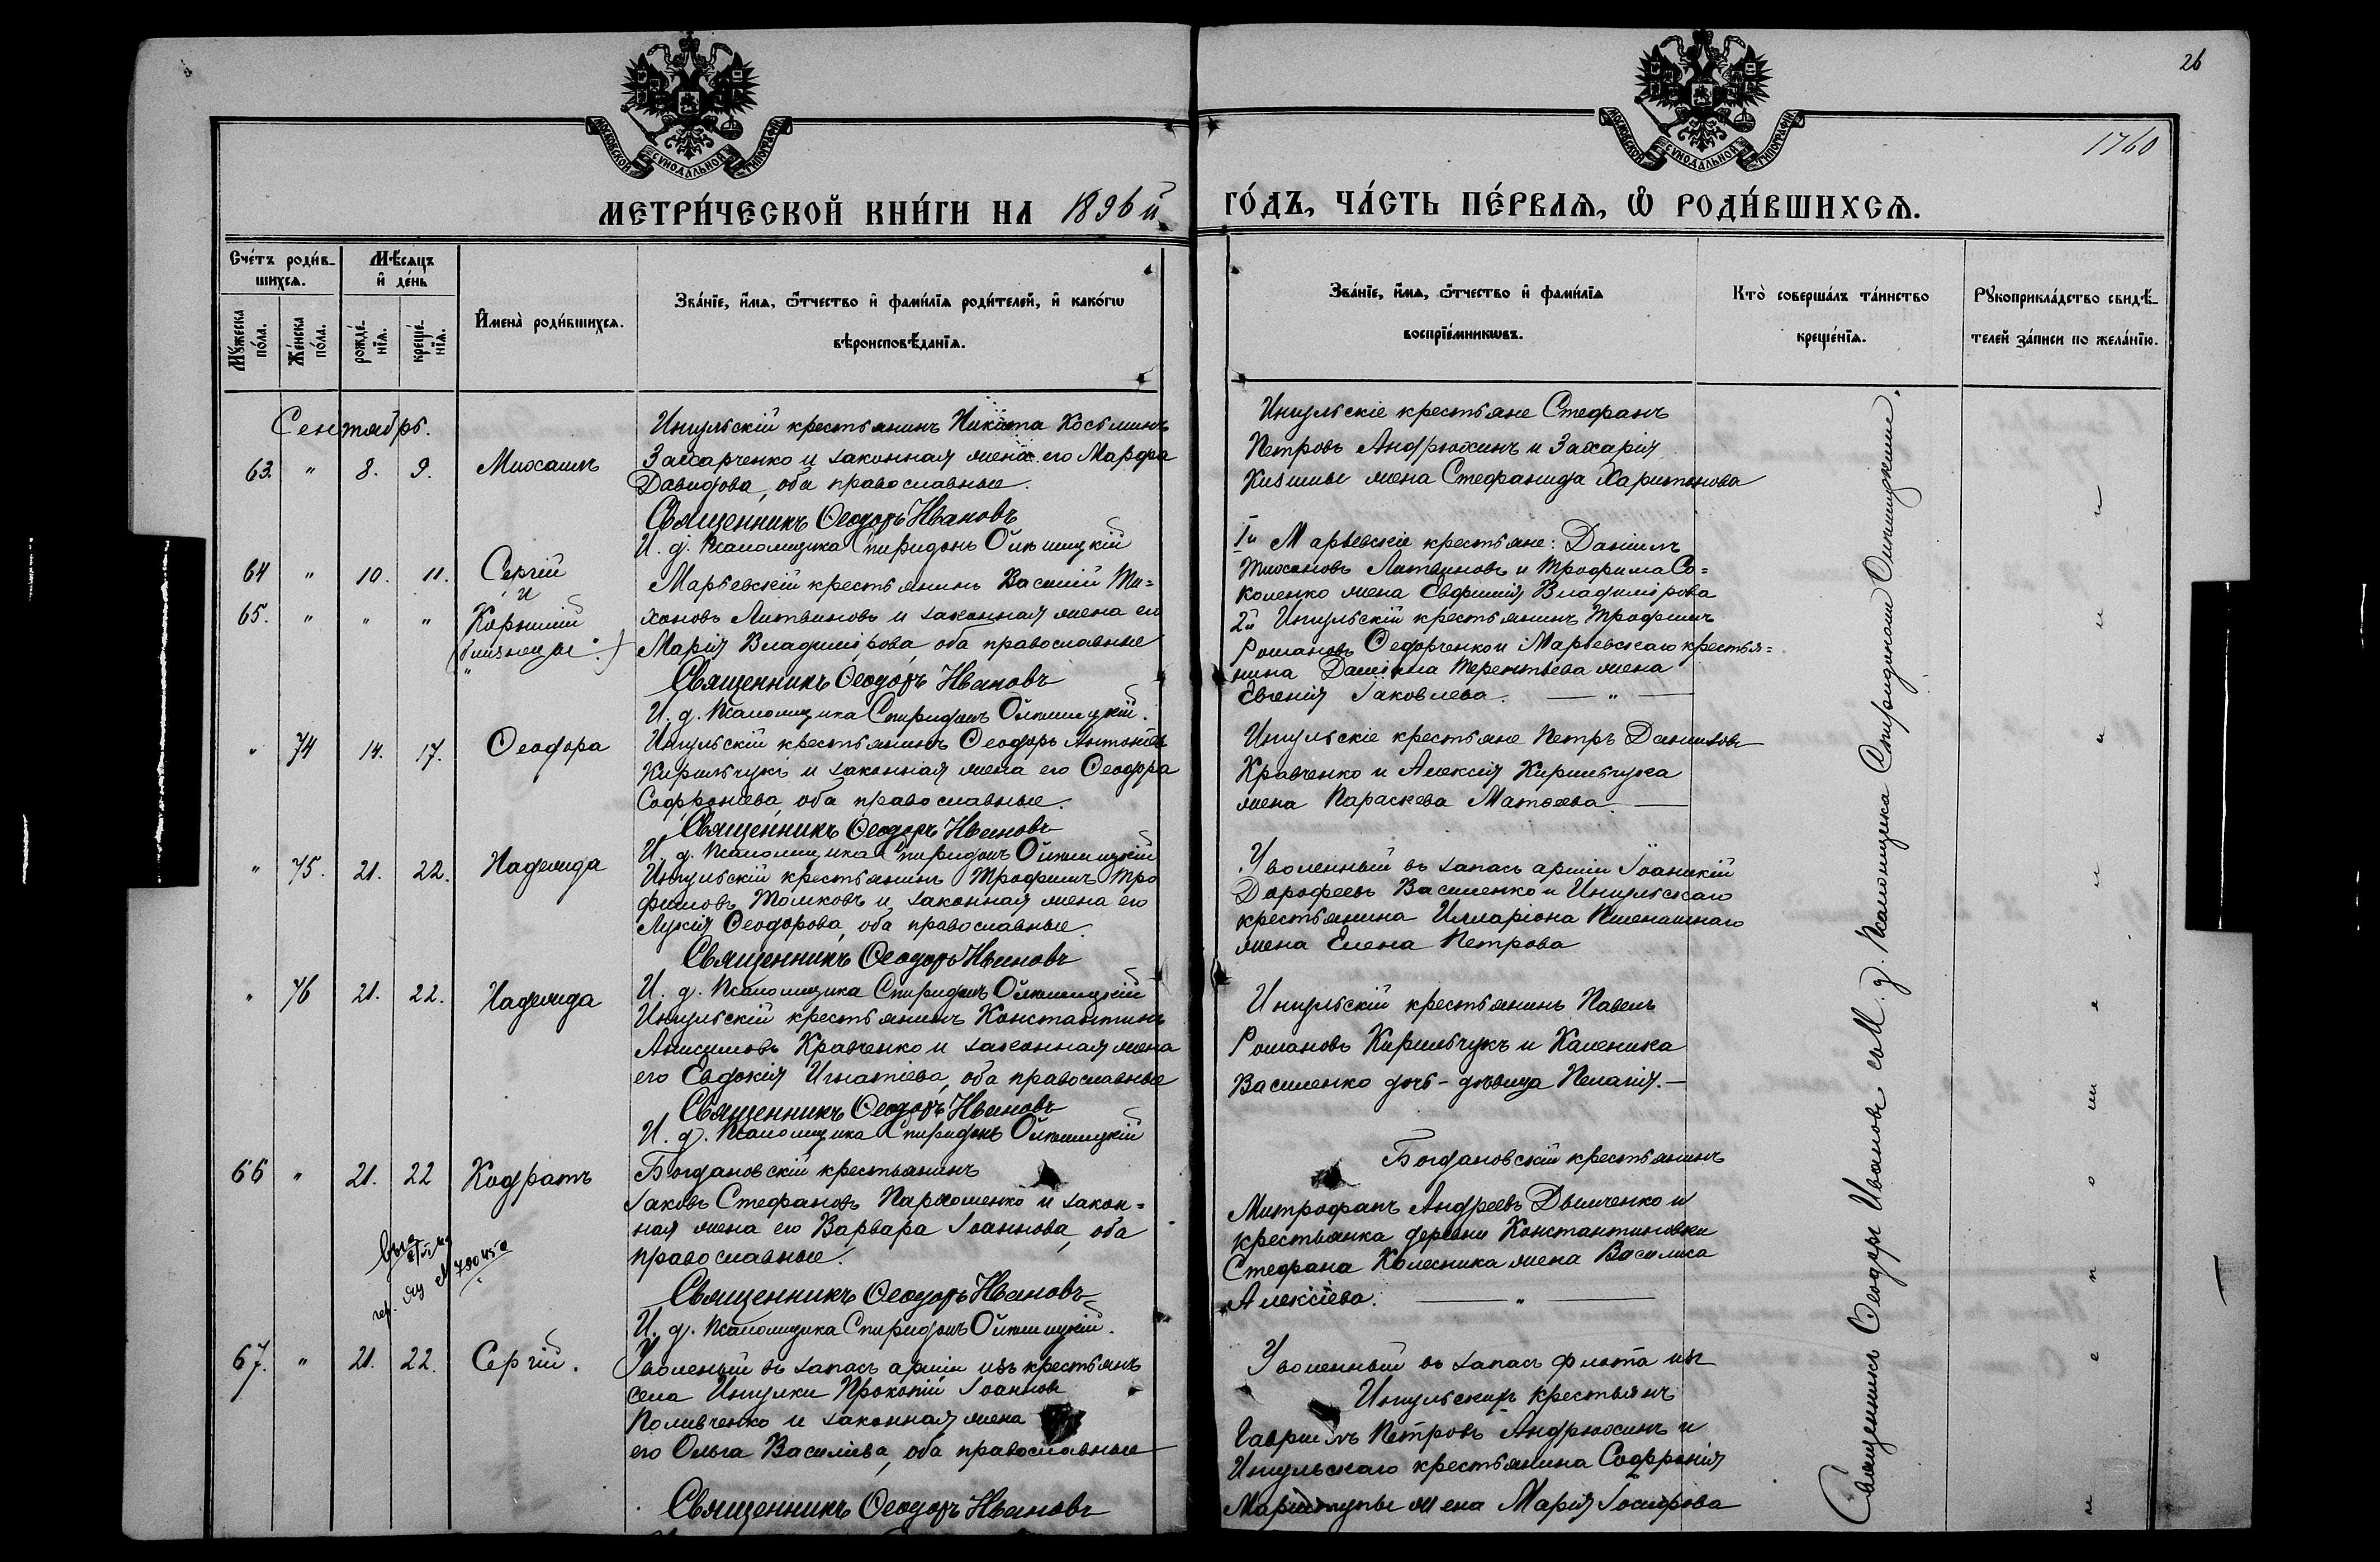 26
1760
МОСКОВСКОЙ СУНОДАЛЬНОЙ ТИПОГРАФІИ
МОСКОВСКОЙ СУНОДАЛЬНОЙ ТИПОГРАФІИ
МЕТРИ́ЧЕСКОЙ КНИ́ГИ НА 1896 й
ГО́ДЪ, ЧА́СТЬ ПЕ́РВАѦ, Ѡ РОДИ́ВШИХСѦ.
Сче́тъ роди́в-
шихсѧ.
Мѣ́сѧцъ
и де́нь
Му́жеска по́ла.
Же́нска по́ла.
рожде́-
нїѧ.
креще́-
нїѧ.
Имена̀ роди́вшихсѧ.
Зва́нїе, и́мѧ, ѻ҆́тчество и҆ фами́лїѧ роди́телей, и҆ како́гѡ
вѣроисповѣ́данїѧ.
Зва́нїе, и́мѧ, ѻ҆́тчество и҆ фами́лїѧ
воспрїе́мникѡвъ.
Кто̀ соверша́лъ та́инство
креще́нїѧ.
Рꙋкоприкла́дство свидѣ́-
телей за́писи по жела́нїю.
Сентябрь.
63. " 8. 9. Михаилъ
Ингульскій крестьянинъ Никита Косьминъ
Захарченко и законная жена его Марфа
Давидова, оба православные.
Священникъ Ѳеодоръ Ивановъ
И. д. Псаломщика Спиридонъ
Ингульскіе крестьяне Стефанъ
Петровъ Андрюхинъ и Захарія
жена Стефанида Харитонова
64 " 10. 11. Сергій
и
65. " " " Корнилій
(близнецы)
Марьевскій крестьянинъ Василій Ти-
хоновъ Литвиновъ и законная жена его
Марія Владимірова, оба православные
Священникъ Ѳеодоръ Ивановъ
И. д. Псаломщика Спиридонъ
1й Марьевскіе крестьяне: Даніилъ
Тихоновъ Литвиновъ и Трофима Со-
коленко жена Евфимія Владимірова
2й Ингульскій крестьянинъ Трофимъ
Романовъ Ѳедорченко и Марьевскаго крестья-
нина Даміана Терентьева жена
Евгенія Іаковлева. — " —
" 74 14. 17. Ѳеодора
Ингульскій крестьянинъ Ѳеодоръ Антоніевъ
Кирильчукъ и законная жена его Ѳеодора
Софроніева, оба православные.
Священникъ Ѳеодоръ Ивановъ
И. д. Псаломщика Спиридонъ
Ингульскіе крестьяне Петръ Даниловъ
Кравченко и Алексія Кирильчука
жена Параскева Матѳеева —
" 75. 21. 22. Надежда
Ингульскій крестьянинъ Трофимъ Тро
фимовъ Толмковъ и законная жена его
Лукія Ѳеодорова, оба православные.
Священникъ Ѳеодоръ Ивановъ
И. д. Псаломщика Спиридонъ
Уволенный въ запасъ арміи Іоанникій
Дорофеевъ Василенко и Ингульскаго
крестьянина Илларіона Пшеничнаго
жена Елена Петрова
" 76 21. 22. Надежда
Ингульскій крестьянинъ Константинъ
Анисимовъ Кравченко и законная жена
его Евдокія Игнатіева, оба православные
Священникъ Ѳеодоръ Ивановъ
И. д. Псаломщика Спиридонъ
Ингульскій крестьянинъ Павелъ
Романовъ Кирильчукъ и Каленика
Василенко дочь-дѣвица Пелагія. —
66 " 21. 22 Кодратъ
Богдановскій крестьянинъ
Іаковъ Стефановъ Пархоменко и закон-
ная жена его Варвара Іоаннова, оба
православные.
Священникъ Ѳеодоръ Ивановъ
И. д. Псаломщика Спиридонъ
Богдановскій крестьянинъ
Митрофанъ Андреевъ Дымченко и
крестьянка деревни Константиновки
Стефана Колесника жена Василиса
Алексіева. — " —
67. " 21. 22. Сергій.
Уволеный въ запасъ арміи изъ крестьянъ
села Ингулки Прокопій Іоанновъ
Поливченко и законная жена
его Ольга Василіева, оба православные
Священникъ Ѳеодоръ Ивановъ
Уволенный въ запасъ флота изъ
Ингульскихъ крестьянъ
Гавріилъ Петровъ Андрюхинъ и
Ингульскаго крестьянина Софронія
жена Марія Іосифова
Священникъ Ѳеодоръ Ивановъ съ И. д. Псаломщика Спиридономъ